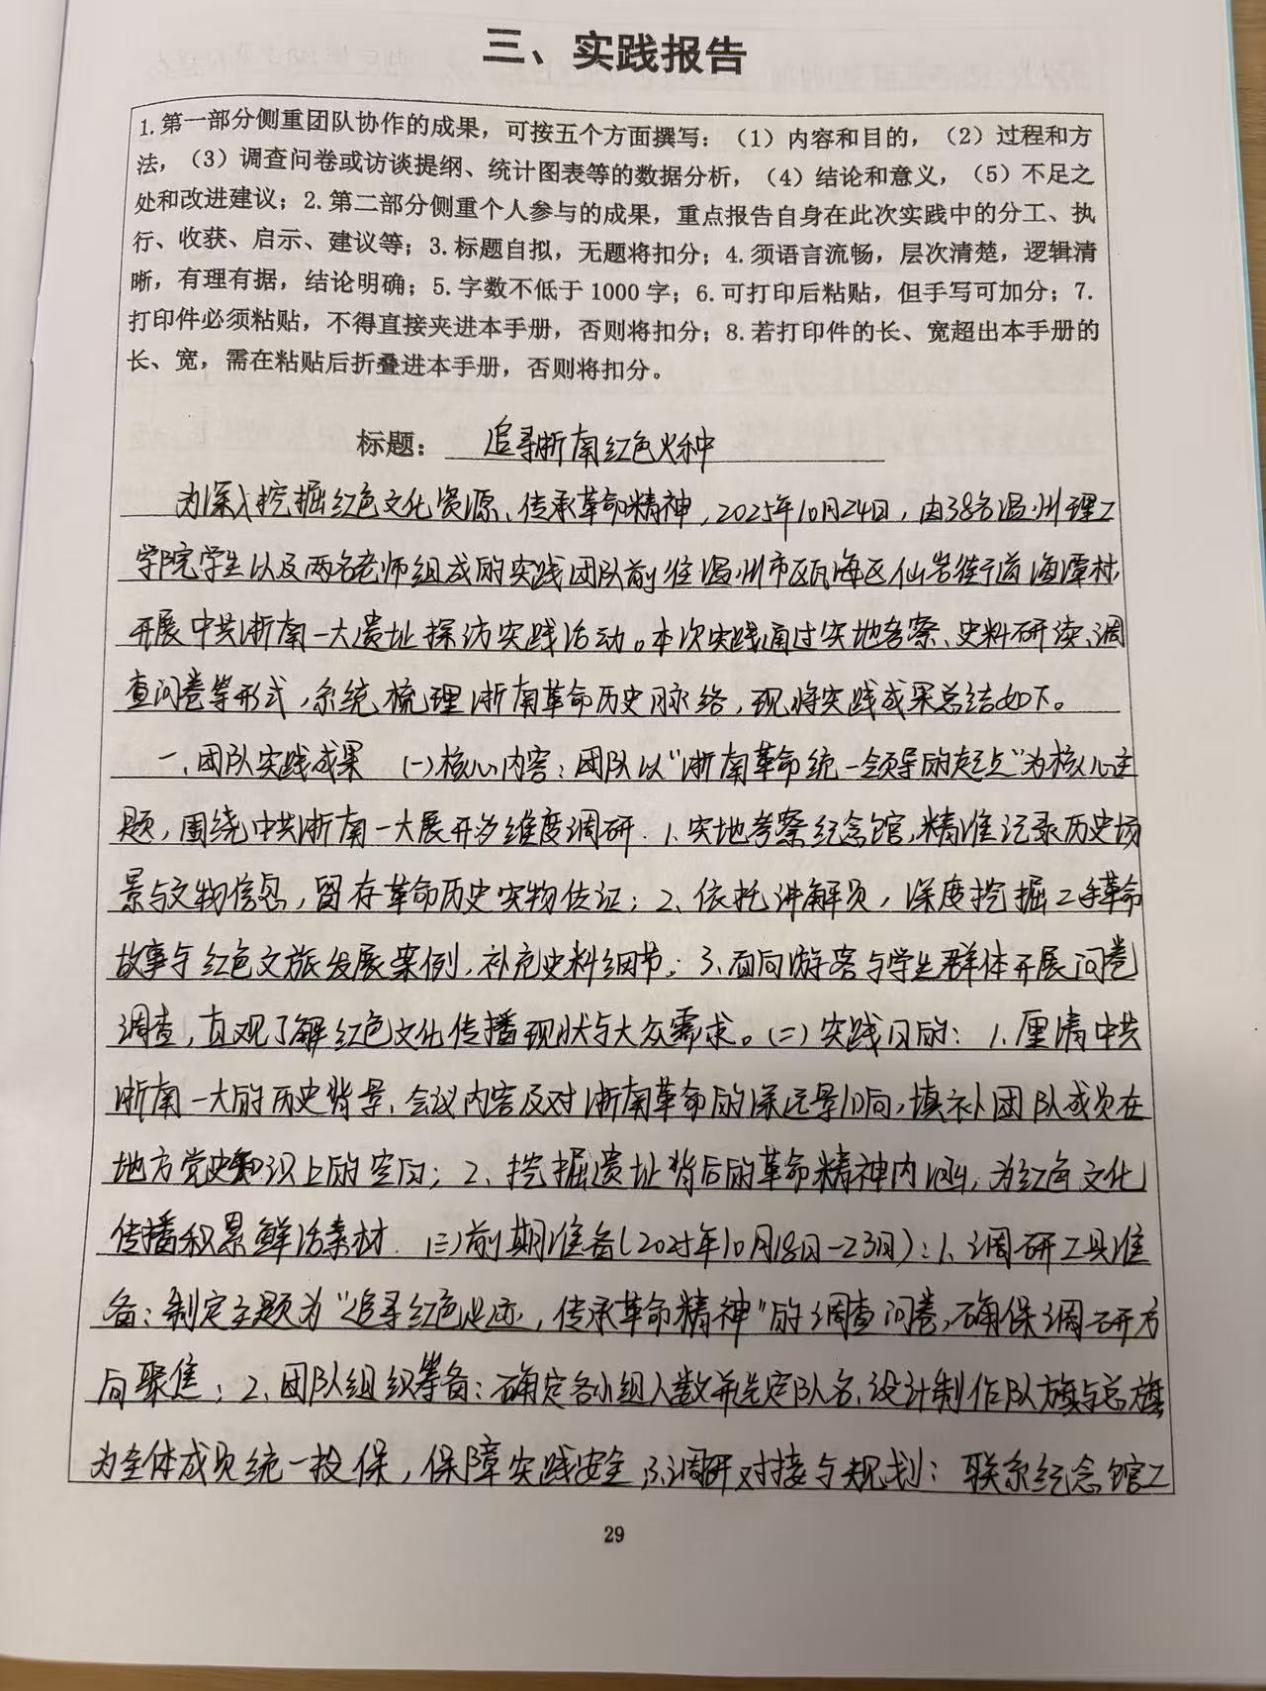 三、实践报告
1.第一部分侧重团队协作的成果，可按五个方面撰写：（1）内容和目的，（2）过程和方
法，（3）调查问卷或访谈提纲、统计图表等的数据分析，（4）结论和意义，（5）不足之
处和改进建议；2.第二部分侧重个人参与的成果，重点报告自身在此次实践中的分工、执
行、收获、启示、建议等；3.标题自拟，无题将扣分；4.须语言流畅，层次清楚，逻辑清
晰，有理有据，结论明确；5.字数不低于1000字；6.可打印后粘贴，但手写可加分；7.
打印件必须粘贴，不得直接夹进本手册，否则将扣分；8.若打印件的长、宽超出本手册的
长、宽，需在粘贴后折叠进本手册，否则将扣分。
标题：追寻浙南红色火种
为深入挖掘红色文化资源、传承革命精神，2025年10月24日，由38名温州理工
学院学生以及两名老师组成的实践团队前往温州市瓯海区仙岩街道渔潭村，
开展中共浙南一大遗址探访实践活动。本次实践通过实地考察、史料研读、调
查问卷等形式，系统梳理浙南革命历史脉络，现将实践成果总结如下。
一、团队实践成果 (一)核心内容：团队以“浙南革命统一领导的起点”为核心主
题，围绕中共浙南一大展开多维度调研．1、实地考察纪念馆，精准记录历史场
景与文物信息，留存革命历史实物佐证；2、依托讲解员，深度挖掘二手革命
故事与红色文旅发展案例，补充史料细节；3、面向游客与学生群体开展问卷
调查，直观了解红色文化传播现状与大众需求。(二)实践目的：1、厘清中共
浙南一大的历史背景、会议内容及对浙南革命的深远影响，填补团队成员在
地方党史知识上的空白；2、挖掘遗址背后的革命精神内涵，为红色文化
传播积累鲜活素材．(三)前期准备(2025年10月18日-23日)：1、调研工具准
备：制定主题为“追寻红色足迹，传承革命精神”的调查问卷，确保调研方
向聚焦；2、团队组织筹备：确定各小组人数并选定队名、设计制作队旗与总旗
为全体成员统一投保，保障实践安全；3、调研对接与规划：联系纪念馆工
29